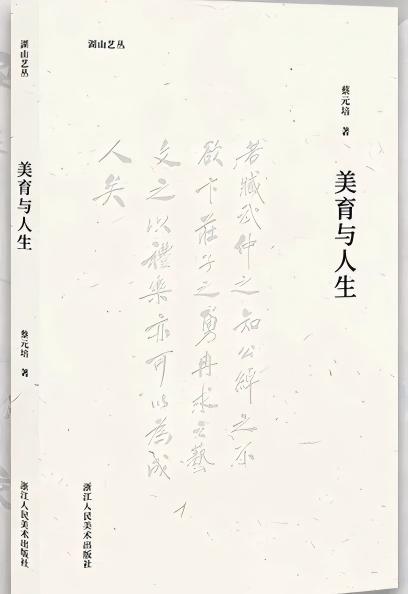 湖山艺丛
美育与人生
蔡元培 著
浙江人民美术出版社
湖山艺丛
蔡元培 著
美育与人生
若臧武仲之知公綽之不
欲卞莊子之勇冉求之藝
文之以禮樂亦可以為成
人矣
浙江人民美术出版社